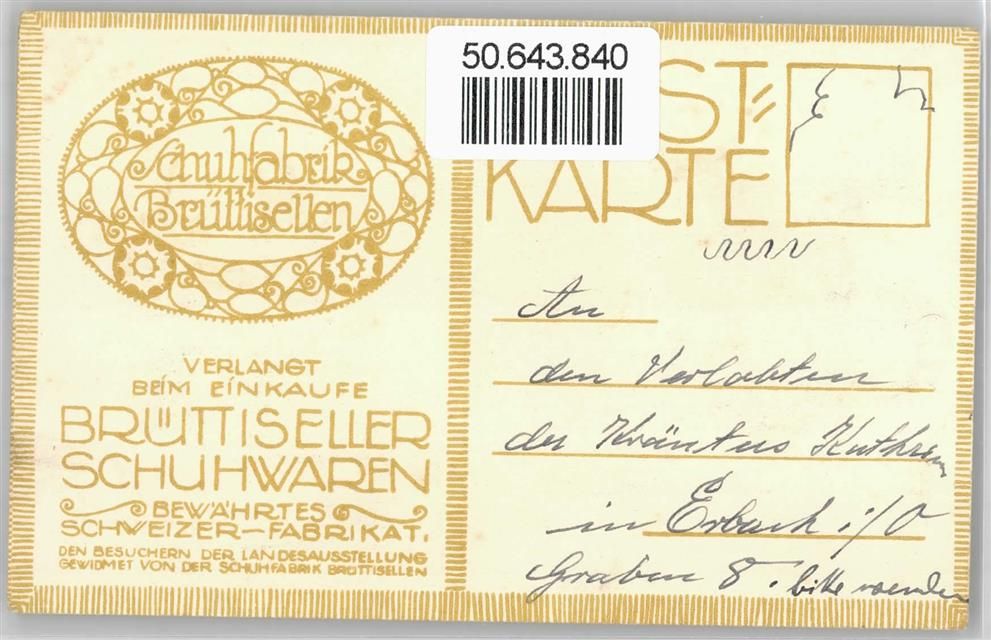 Schuhfabrik
Brüttisellen
VERLANGT
BEIM EINKAUFE
BRÜTTISELLER
SCHUHWAREN
BEWÄHRTES
SCHWEIZER-FABRIKAT.
DEN BESUCHERN DER LANDESAUSSTELLUNG
GEWIDMET VON DER SCHUHFABRIK BRÜTTISELLEN
50.643.840
ST-
KARTE
An
den Verlobten
der Kathrein
in Erbach i/O
Graben 8. bitte wenden